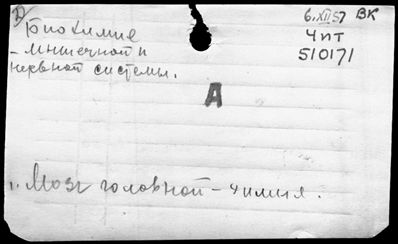 6.XII.57 ВК
Биохимие
Чит
- мышечной и
510171
нервной системы.
А
1. Мозг головной - химия.